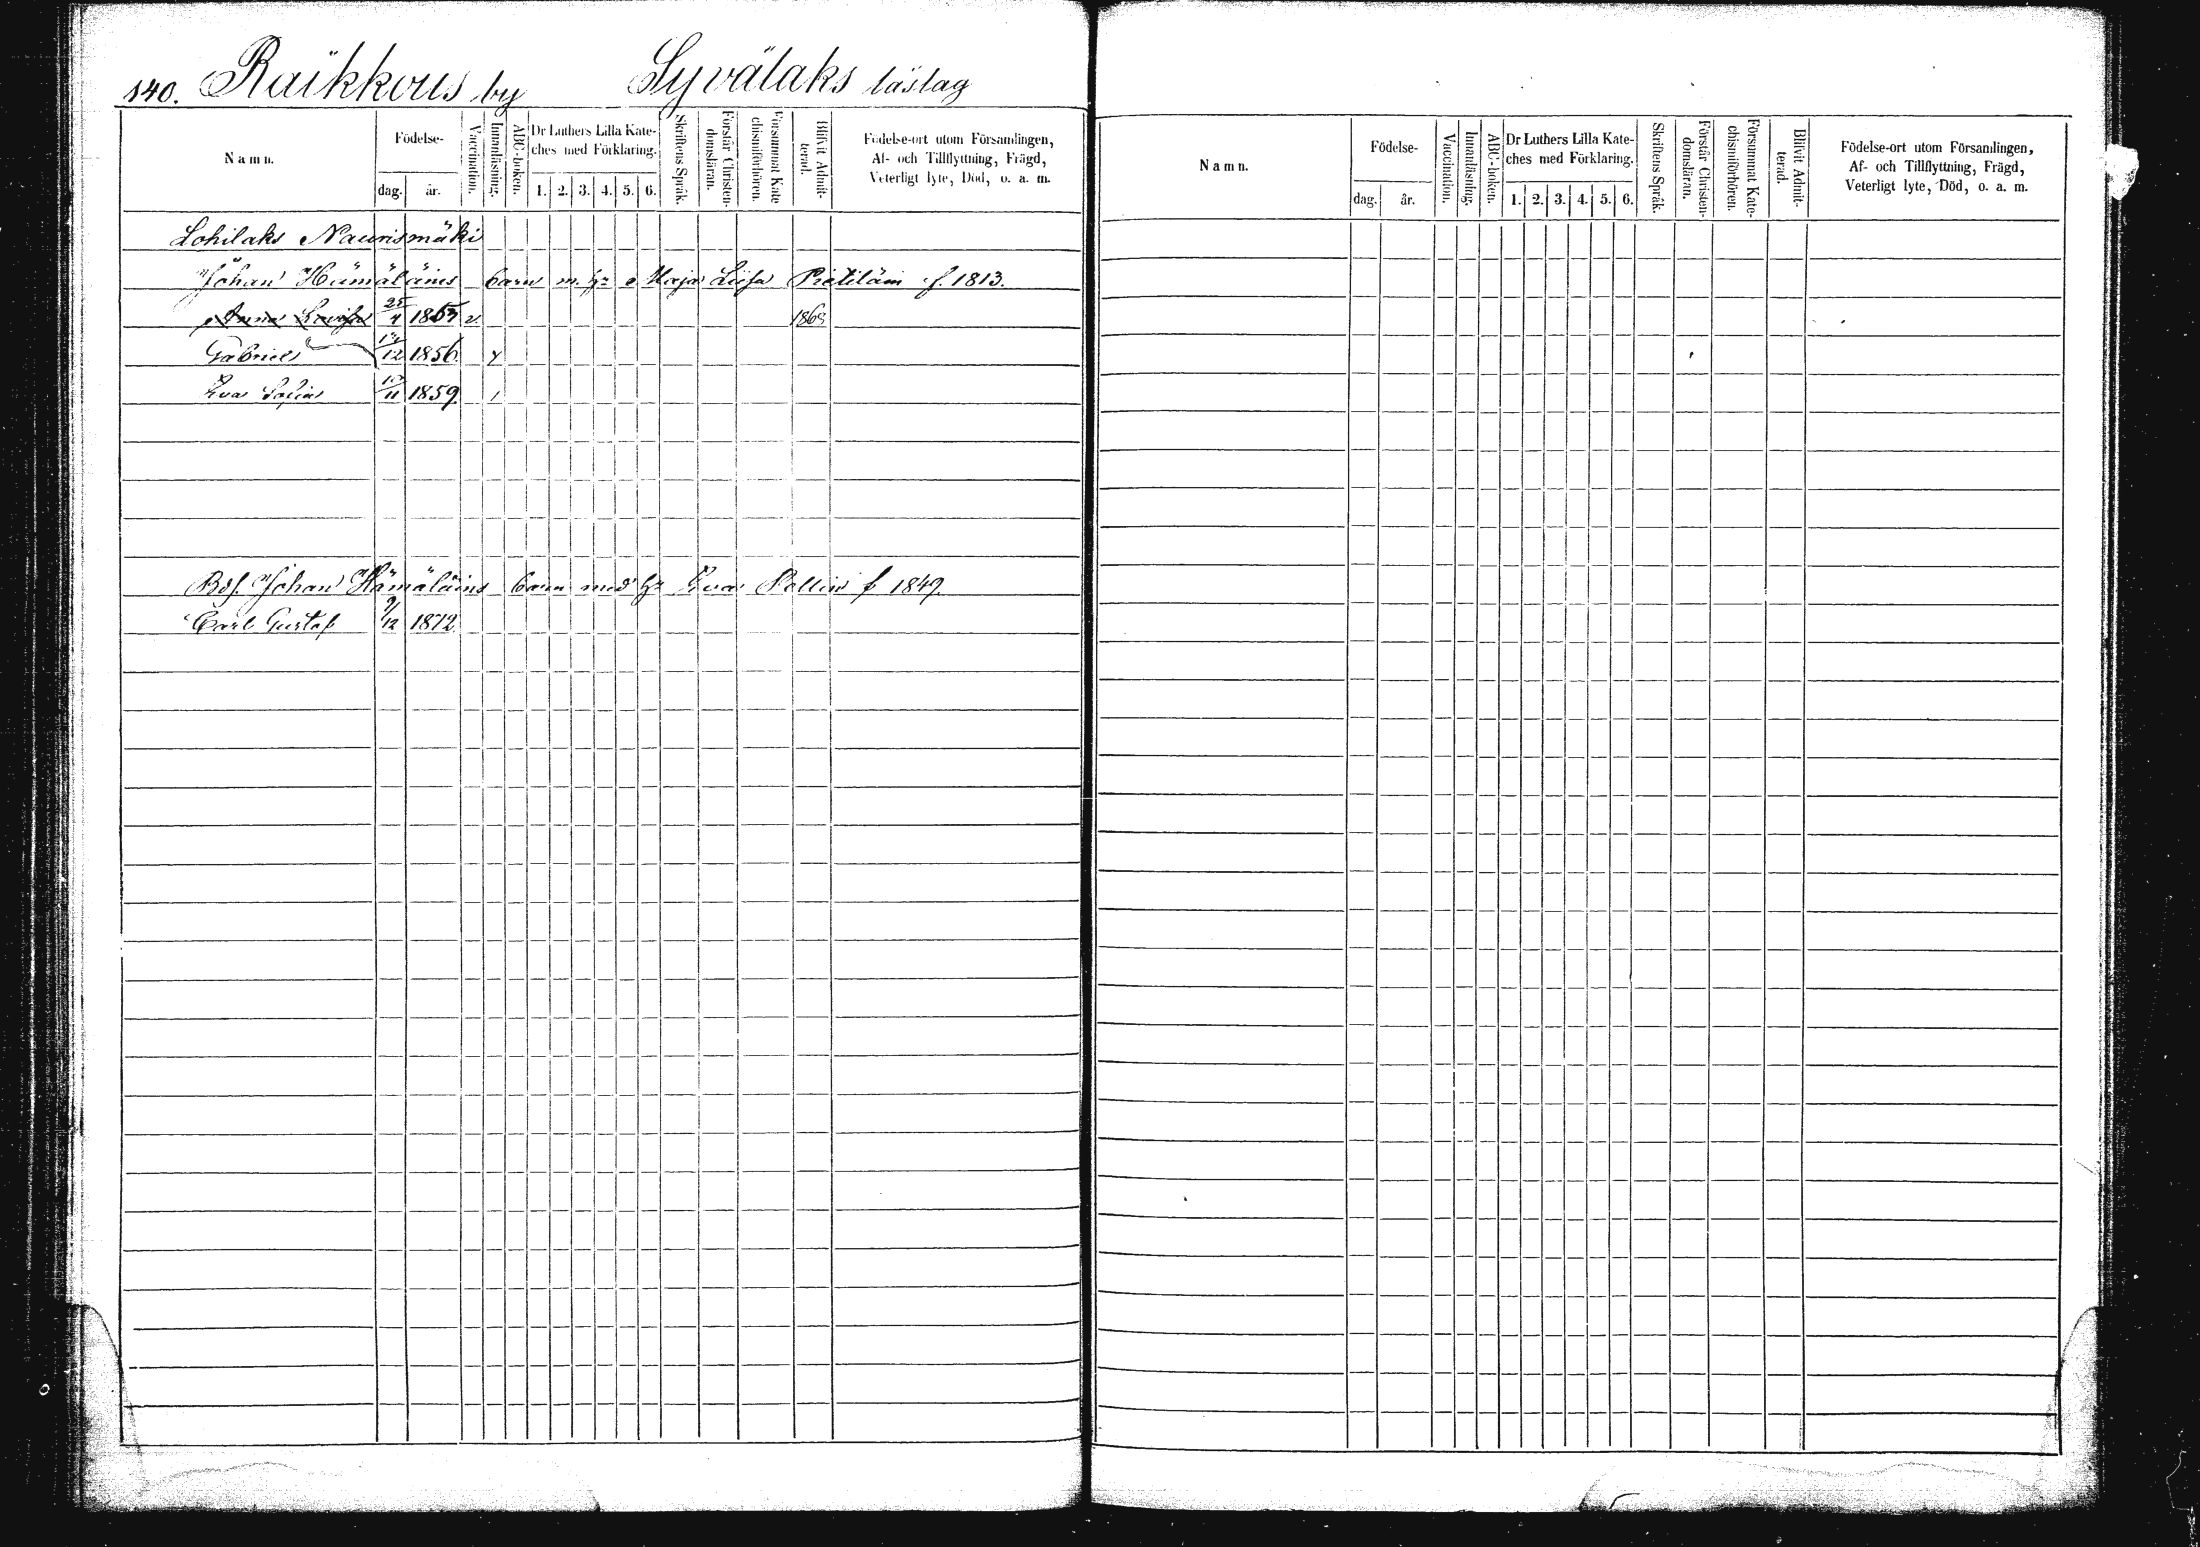 140. Räikkous by Syvälaks läslag
Namn.
Födelse-
dag. år.
Vaccination.
Innanläsning.
ABC-boken.
Dr Luthers Lilla Kate-
ches med Förklaring.
1. 2. 3. 4. 5. 6.
Skriftens Språk.
Förstår Christen-
domsläran.
Försummat Kate-
chismiförhören.
Blifvit Admit-
terad.
Födelse-ort utom Församlingen,
Af- och Tillflyttning, Frägd,
Veterligt lyte, Död, o. a. m.
Lohilaks Naurismäki
Johan Hämäläins barn m. h. Maja Liisa Pietiläin f. 1813.
Anna Lovisa 25/4 1853 v. 1869
Gabriel 12 1856
Eva Sofia 10/11 1859
Bdf. Johan Hämäläins barn med h. Eva Pellin f 1849.
Carl Gustaf 9/12 1872
Namn.
Födelse-
dag. år.
Vaccination.
Innanläsning.
ABC-boken.
Dr Luthers Lilla Kate-
ches med Förklaring.
1. 2. 3. 4. 5. 6.
Skriftens Språk.
Förstår Christen-
domsläran.
Försummat Kate-
chismiförhören.
Blifvit Admit-
terad.
Födelse-ort utom Församlingen,
Af- och Tillflyttning, Frägd,
Veterligt lyte, Död, o. a. m.